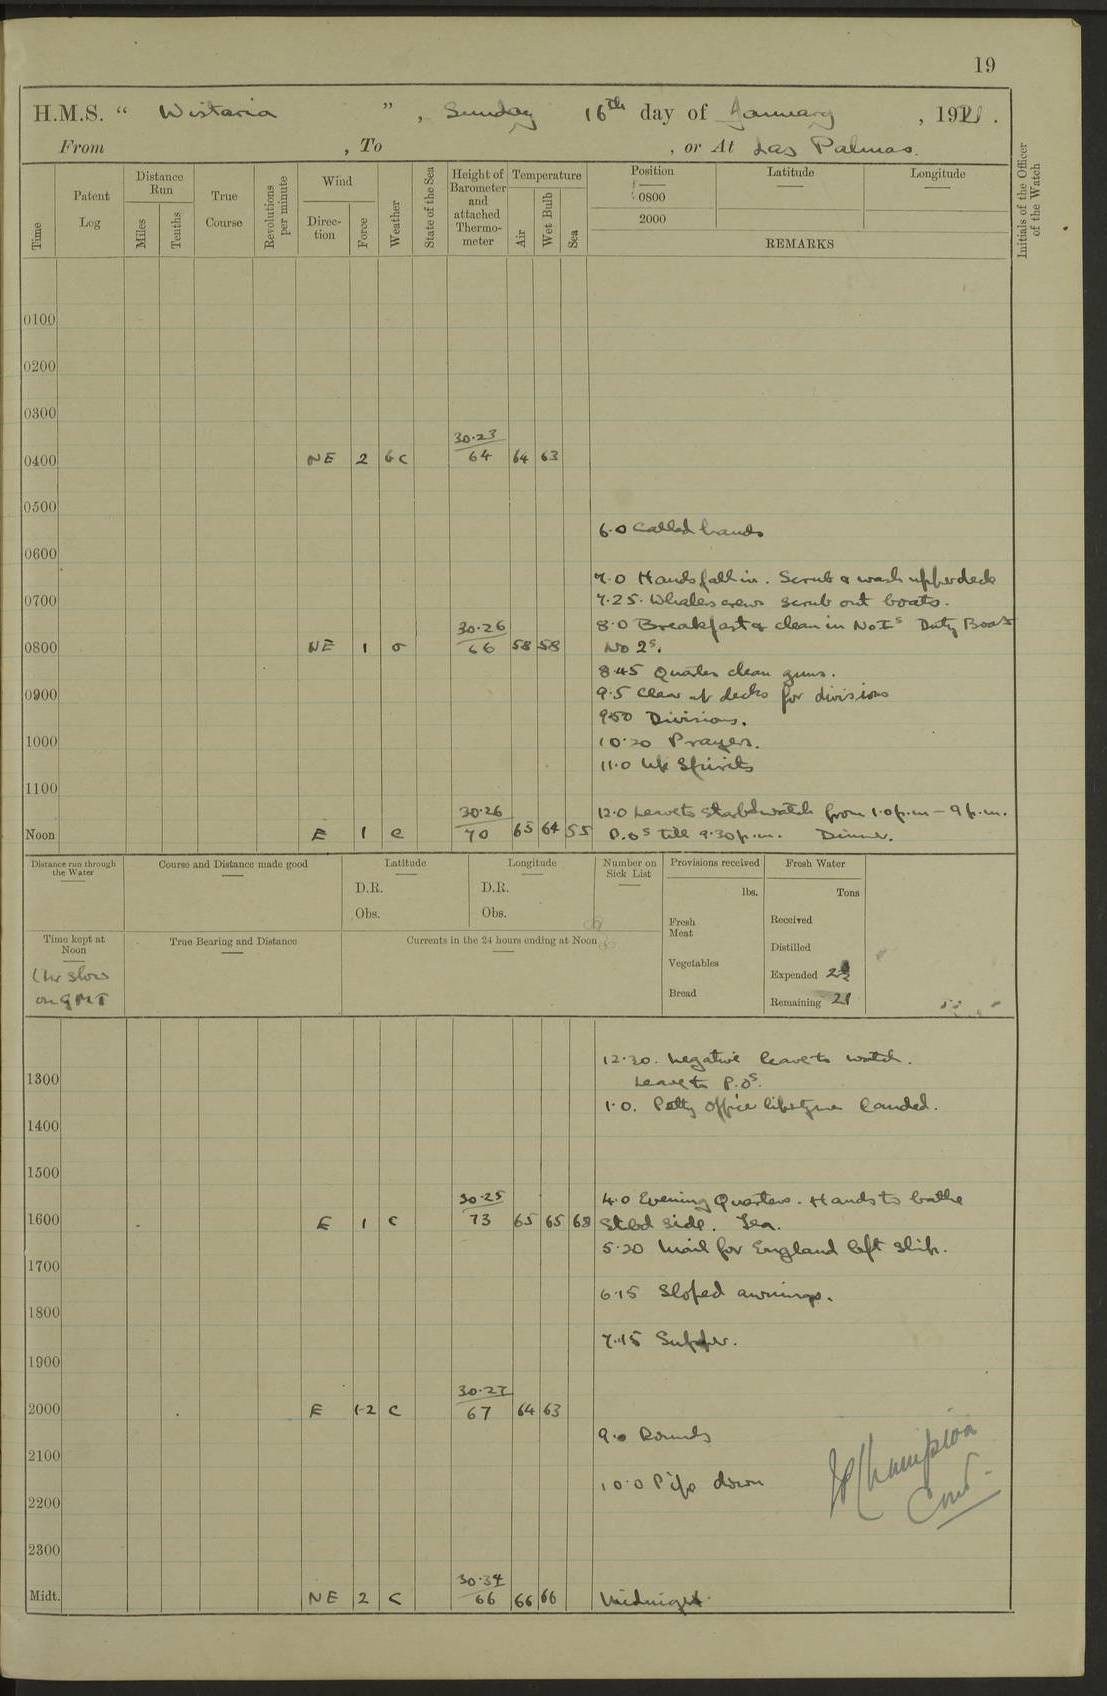 19
H.M.S. " Wistaria ", Sunday 16th day of January, 1921.
From , To , or At Las Palmas.
Time
Patent Log
Distance Run
Miles
Tenths
True Course
Revolutions per minute
Wind
Direc-tion
Force
Weather
State of the Sea
Height of Barometer and attached Thermo-meter
Temperature
Air
Wet Bulb
Sea
Position
0800
2000
Latitude
Longitude
REMARKS
Initials of the Officer of the Watch
0100
0200
0300
0400 NE 2 bc 30·23 64 64 63
0500
6.0 Called hands
0600
7.0 Hands fall in. Scrub & wash upper deck
0700 7.25. Whalers crews scrub out boats.
8.0 Breakfast & clean in No 1s Duty Boat
0800 NE 1 o 30·26 66 58 58 No 2s.
8.45 Quarters clean guns.
0900 9.5 Clear up decks for divisions
9.50 Divisions.
1000 10.20 Prayers.
11.0 Up Spirits
1100
12.0 Leave to Starbd watch from 1.0 p.m – 9 p.m.
Noon E 1 c 30·26 70 65 64 55 P.Os till 9.30 p.m. Dinner.
Distance run through the Water
Course and Distance made good
Latitude
D.R.
Obs.
Longitude
D.R.
Obs.
Number on Sick List
Provisions received
lbs.
Fresh Meat
Vegetables
Bread
Fresh Water
Tons
Received
Distilled
Expended
Remaining 21
Time kept at Noon
1 hr slow on GMT
True Bearing and Distance
Currents in the 24 hours ending at Noon
12.30. Negative leave to watch.
1300 Leave to P.Os.
1.0. Petty Officer libertymen landed.
1400
1500
4.0 Evening Quarters. Hands to bathe
1600 E 1 c 30·25 73 65 65 68 Stbd side. Tea.
5.20 Mail for England left ship.
1700
6.15 Sloped awnings.
1800
7.15 Supper.
1900
2000 E 1-2 c 30·27 67 64 63
9.0 Rounds
2100
10.0 Pipe down
2200
Champion
Comr
2300
Midt. NE 2 c 30·34 66 66 66 Midnight.